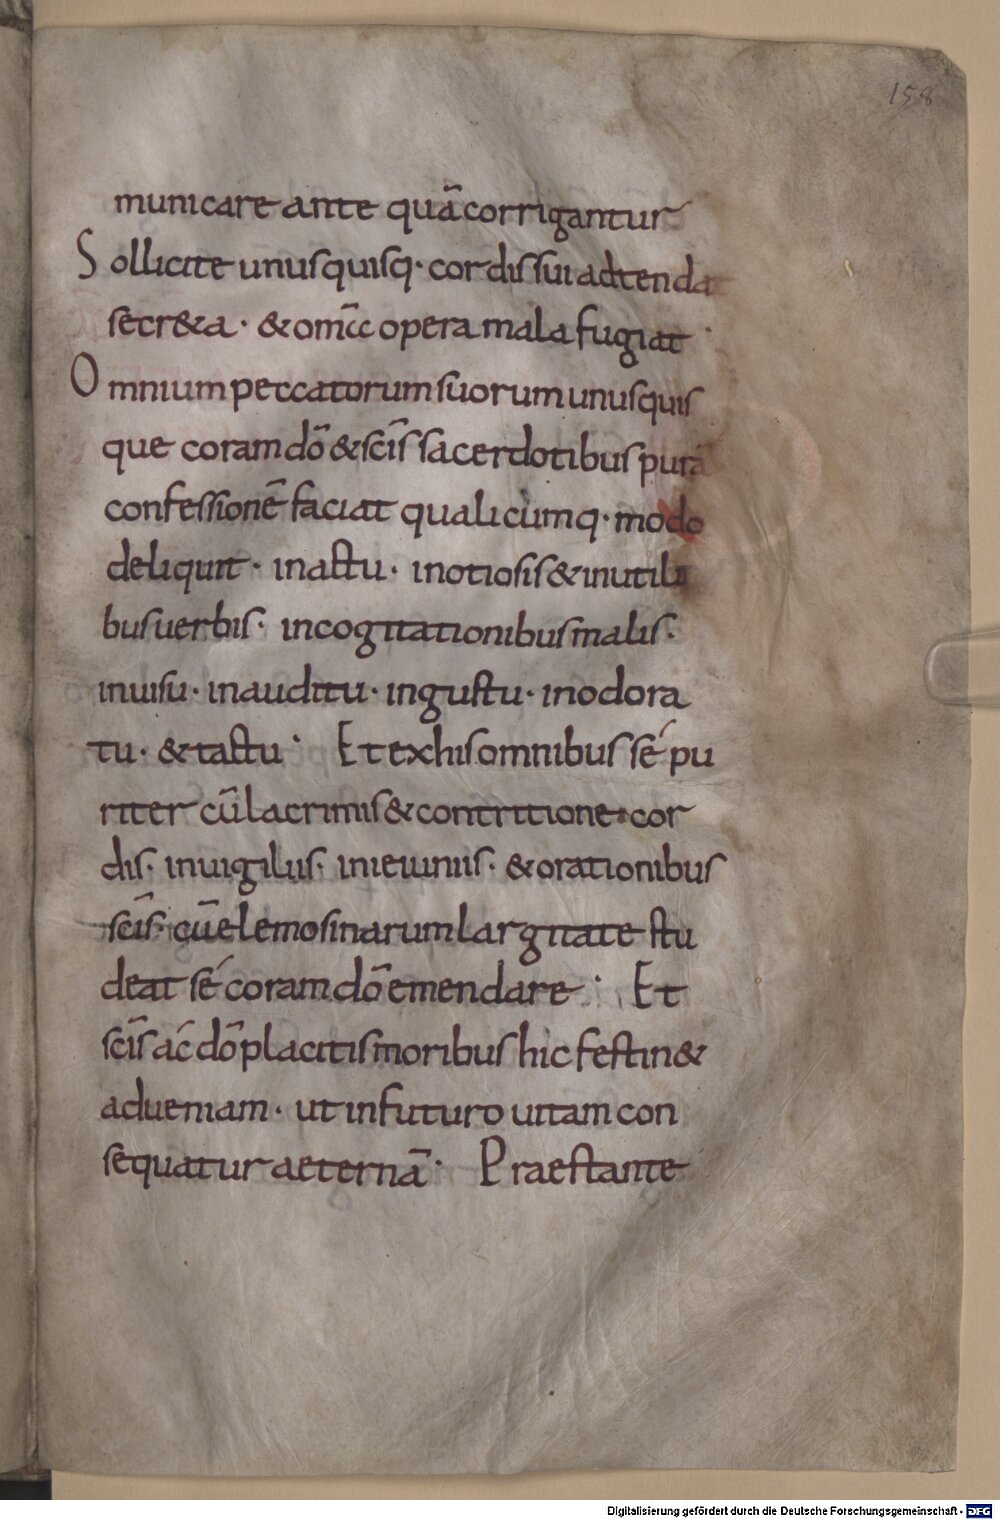 158
municare ante quā corrigantur
Sollicite unusquisq· cordis sui adtendat
secr&a · & om̄ia opera mala fugiat ·
Omnium peccatorum suorum unusquis
que coram dō & scīs sacerdotibus purā
confessionē faciat qualicumq· modo
deliquit · in actu · in otiosis & inutili
bus uerbis · in cogitationibus malis ·
in uisu · in auditu · in gustu · in odora
tu · & tactu · Et ex his omnibus sé pu
riter cū lacrimis & contritione cor
dis · in uigiliis · in ieiuniis · & orationibus
scīs · cū elemosinarum largitate stu
deat sé coram dō emendare · Et
scīs ac dō placitis moribus hic festin&
ad ueniam · ut in futuro uitam con
sequatur aeternā · Praestante
Digitalisierung gefördert durch die Deutsche Forschungsgemeinschaft - DFG